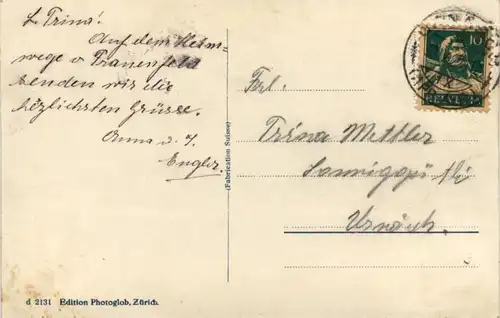 L. Trina!
Auf dem Heim-
wege v Frauenfeld
senden wir die
herzlichsten Grüsse.
Anna u. J.
Engler.
(Fabrication Suisse)
10
HELVETIA
Frl.
Trina Mettler
Urnäsch.
d 2131 Edition Photoglob, Zürich.